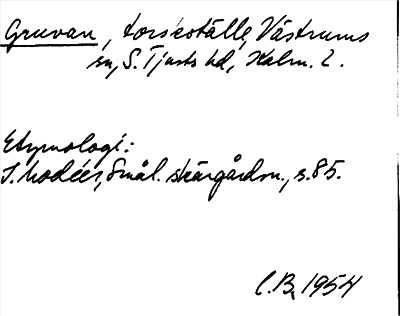 Gruvan, torskställe, Västrums
sn, S. Tjusts hd, Kalm. l.
Etymologi:
I. Modéer, Smål. skärgårdsn., s. 85.
C.B. 1954